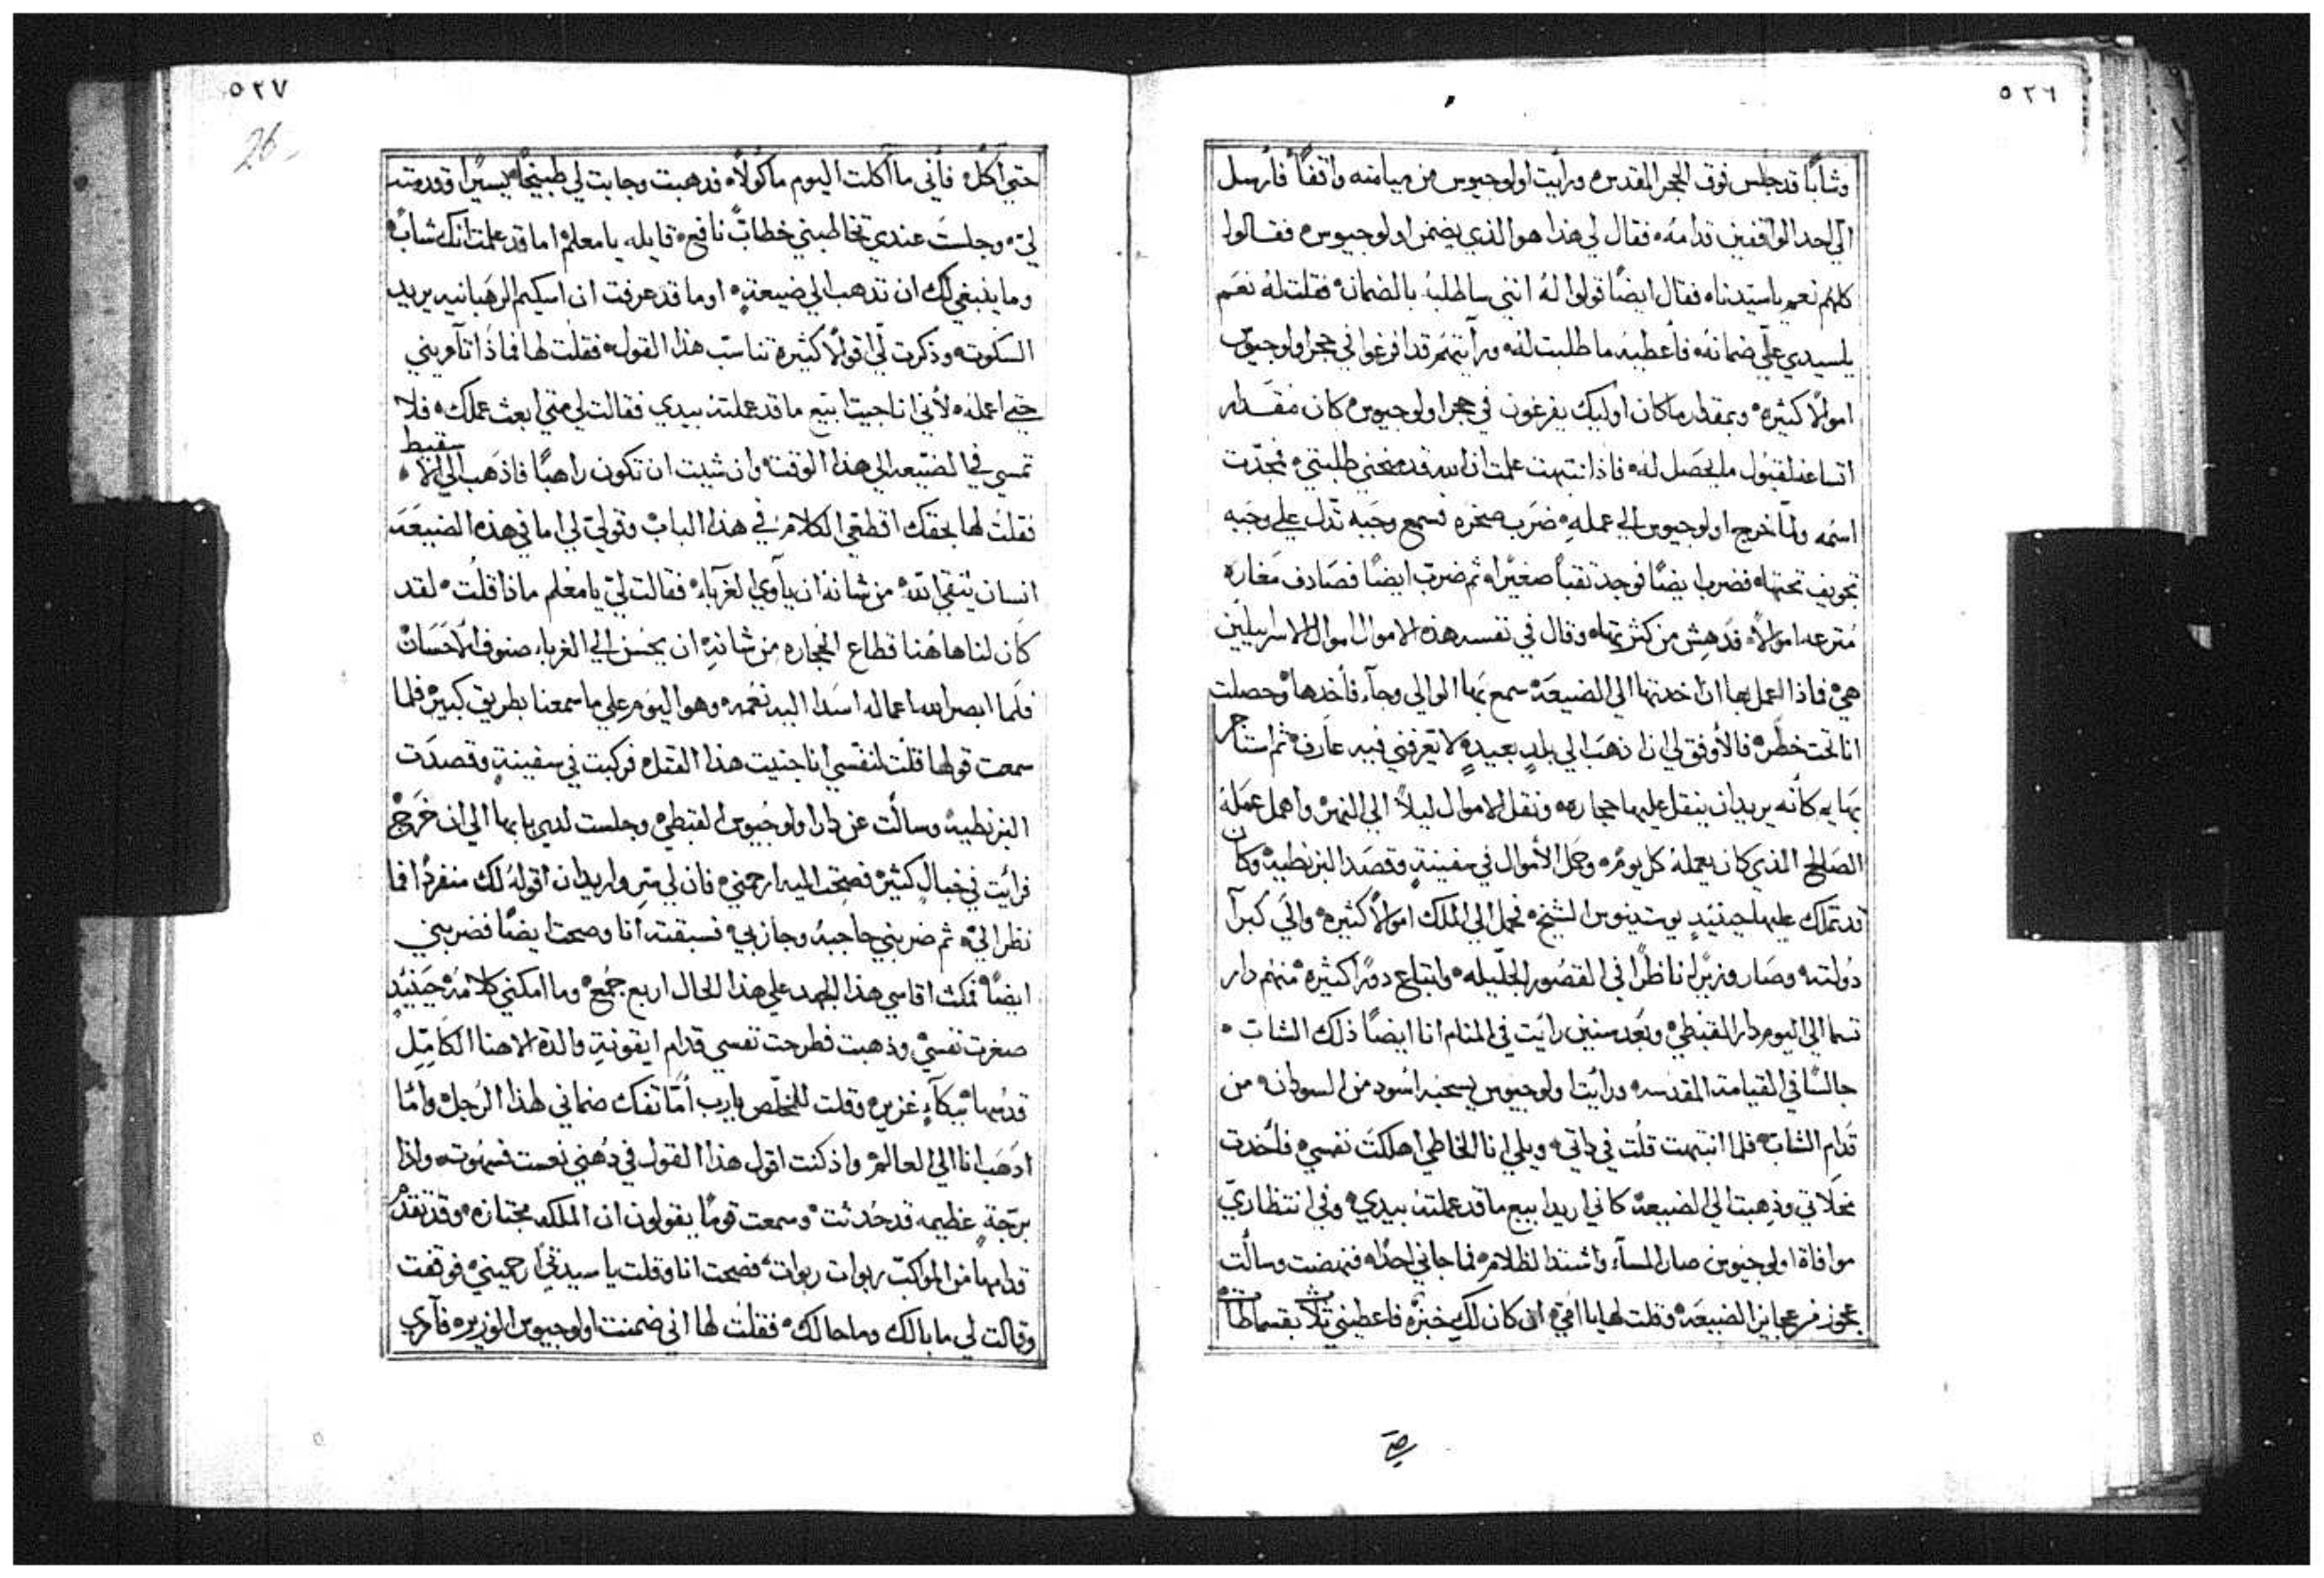 ٥٢٦
وشابًا قد جلس فوق الحجر المقدس، ورأيت اولوجيوس من ميامنه واقفًا فأرسل
الي احد الواقفين قدامه، فقال لي هذا هو الذي يضمن اولوجيوس، فقالوا
كلهم نعم يا سيدنا، فقال ايضًا قولوا له انني ساطلبه بالضمانه، فقلت له نعم
يا سيدي عليّ ضمانه، فأعطيه ما طلبت له، ورأيتهم قد افرغوا في حجر اولوجيوس
اموالًا كثيره، وبمقدار ما كان اوليك يفرغون في حجر اولوجيوس، كان مقدار
اتساعه لقبول ما يحصل له، فاذ انتبهت علمت ان الله قد منحني طلبتي، فمجّدت
اسمه ولمّا خرج اولوجيوس الي عمله، ضرب صخره فسمع وجبه تدل علي وجبه
تجويف تحتها، فضرب ايضًا فوجد ثقبًا صغيرًا، ثم ضرب ايضًا فصادف مغاره
مترعه اموالًا، فدهش من كثرتها، وقال في نفسه هذه الاموال اموال الاسراييليين
هي، فاذا اعمل بها ان اخدتها الي الضيعه، سمع بها الوالي وجآء فأخدها، وحصلت
انا تحت خطر، فالأوفق لي ان اذهب الي بلدٍ بعيدةٍ لا يعرفني فيه عارف، ثم استاجر
بهايم كأنه يريد ان ينقل عليها حجاره، ونقل الاموال ليلًا الي النهر، واهمل عمله
الصالح الذي كان يعمله كل يوم، وحمل الأموال في سفينةٍ وقصد البزنطيه، وكان
قد تملك عليها حينيدٍ يوستينوس الشيخ، فحمل الي الملك اموالًا كثيره، والي كبرآ
دولته، وصار وزيرًا ناظرًا في القصور الجليله، وابتاع دورًا كثيره، منهم دار
تسما الي اليوم دار القبطي، وبعد سنين رايت في المنام انا ايضًا ذلك الشاب،
جالسًا في القيامة المقدسه، ورأيت اولوجيوس يسحبه اسود من السودان، من
قدام الشاب، فلما انتبهت قلت في داتي، ويلي انا الخاطي اهلكت نفسي، فأخدت
مخلاتي وذهبت الي الضيعه، كأني اريد ابيع ما قد عملته بيدي، وفي انتظاري
موافاة اولوجيوس صار المسآء، واشتد الظلام، فما جاني احدًا، فنهضت وسألت
عجوز من عجايز الضيعه، وقلت لها يا امي، ان كان لك خبزه، فاعطيني ثلاث بقسماطات
٥٢٧
26
حتي آكل، فأني ما أكلت اليوم ماكولًا، فدهبت وجابت لي طبيخًا يسيرًا وقدمته
لي، وجلست عندي تخاطبني خطابًا نافع، قايله يا معلم، اما قد علمت انك شاب،
وما ينبغي لك ان تدهب الي ضيعةٍ، او ما قد عرفت ان اسكيم الرهبانيه يريد
السكوت، وذكرت لي اقوالًا كثيرة تناسب هذا القول، فقلت لها فماذا تأمريني
حتي اعمله، لأني انا جيت ابيع ما قد عملته بيدي، فقالت لي متي ابعت عملك، فلا
تمسي في الضيعه الي هذا الوقت، وان شيت ان تكون راهبًا فاذهب الي الاسقيط
فقلت لها بحقك اقطعي الكلام في هذا الباب، وقولي لي اما في هذه الضيعه
انسان يتقي الله، من شانه ان يآوي الغرباء، فقالت لي يا معلم ماذا قلت، لقد
كان لنا هاهنا قطاع الحجاره من شانه ان يحسن الي الغرباء صنوف الاحسان
فلما ابصر الله اعماله اسدا اليه نعمه، وهو اليوم علي ما سمعنا بطريق كبير، فلما
سمعت قولها قلت لنفسي انا جنيت هذا القتل، فركبت في سفينةٍ وقصدت
البزنطيه، وسالت عن دار اولوجيوس القبطي، وجلست لدي بابها الي ان خرج
فرأيت في خيالٍ كثير، فصحت اليه ارحمني، فان لي سر واريد ان اقوله لك منفردًا فما
نظر الي، ثم ضربني حاجبه وجاز بي، فسبقته انا وصحت ايضًا فضربني
ايضًا، فمكثت اقاسي هذا الجهد علي هذا الحال اربع جمع، وما امكني كلامه، حينيدٍ
صغرت نفسي، وذهبت فطرحت نفسي قدام ايقونة والدة الاهنا الكامل
قدسها، ببكآءٍ غزير، وقلت للمخلص يا رب أمّا تفك ضماني لهذا الرجل، وامّا
ادهب انا الي العالم، واذ كنت اقول هذا القول في ذهني نعست فسهوت، واذا
برجّةٍ عظيمه قد حدثت، وسمعت قومًا يقولون ان الملكه مجتازه، وقد تقدم
قدامها من المواكب ربوات ربوات، فصحت انا وقلت يا سيدتي ارحميني، فوقفت
وقالت لي ما بالك وما حالك، فقلت لها اني ضمنت اولوجيوس الوزير، فآمري